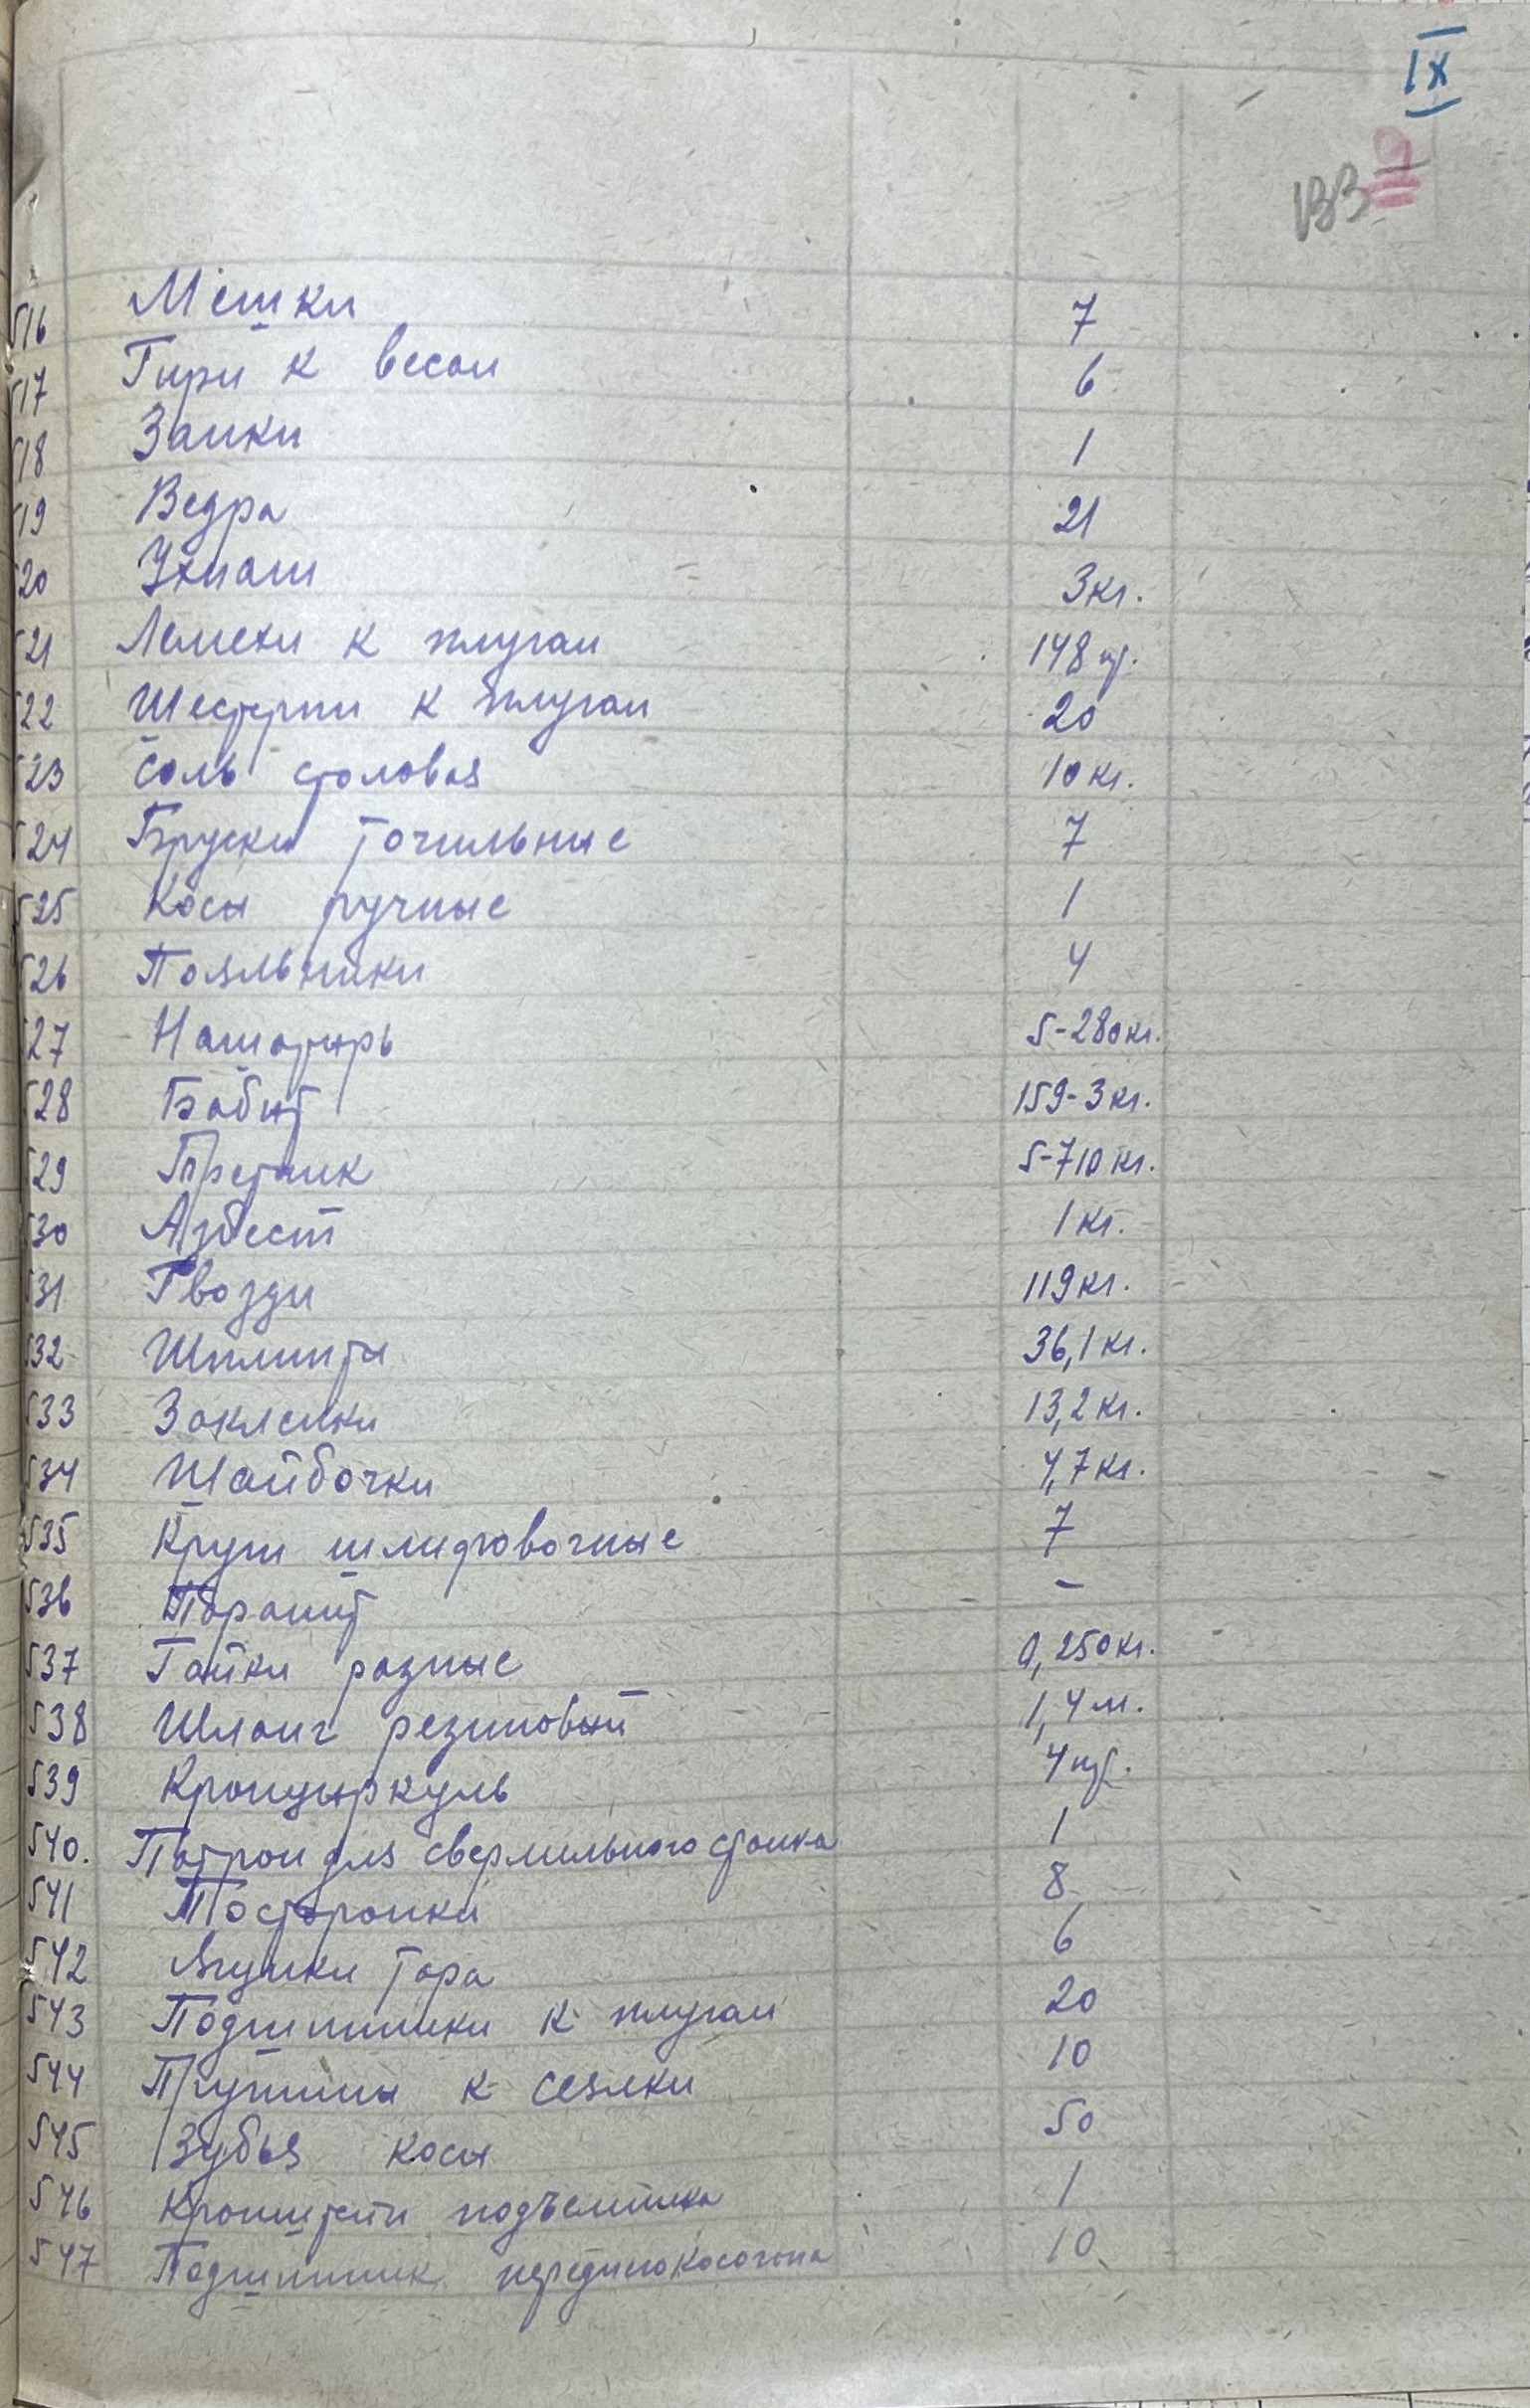 IX
133 9
516 Мешки 7
517 Гири к весам 6
518 Замки 1
519 Ведра 21
520 3кг.
521 Лемехи к плугам 148 шт.
522 Шестерни к плугам 20
523 Соль столовая 10 кг.
524 Бруски точильные 7
525 Косы ручные 1
526 Паяльники 4
527 Нашатырь 5-280кг.
528 Бабит 159-3кг.
529 Третник 5-710 кг.
530 Азбест 1 кг.
531 Гвозди 119кг.
532 Шплинты 36,1 кг.
533 Заклепки 13,2 кг.
534 Шайбочки 4,7 кг.
535 Круги шлифовочные 7
536 Паронит –
537 Гайки разные 0,250кг.
538 Шланг резиновый 1,4 м.
539 Кронциркуль 4 шт.
540. Патрон для сверлильного станка 1
541 Посторонки 8
542 тора 6
543 Подшипники к плугам 20
544 Пружины к сеялки 10
545 Зубья косы 50
546 Кронштейн подъемника 1
547 Подшипник косогона 10